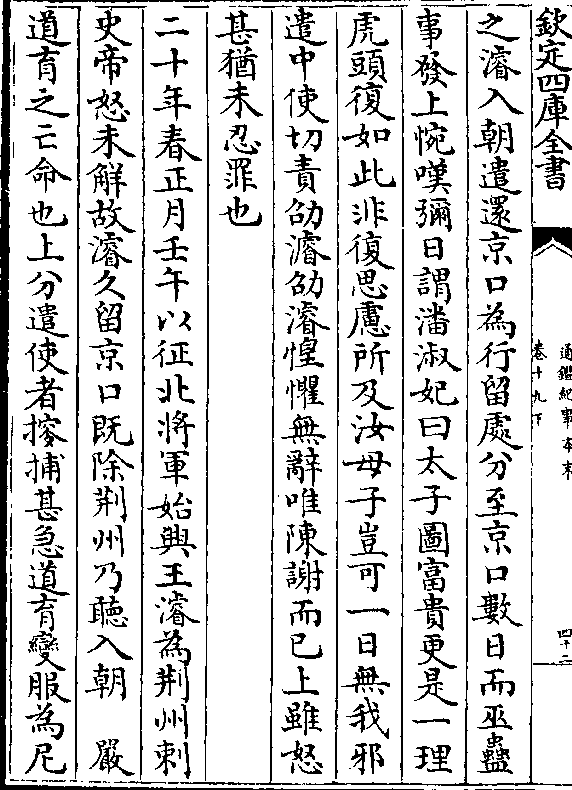 欽定四庫全書
通鑑紀事本末
卷十九下
四十二
之濬入朝遣還京口為行留處分至京口數日而巫蠱
事發上惋嘆彌日謂潘淑妃曰太子圖富貴更是一理
虎頭復如此非復思慮所及汝母子豈可一日無我邪
遣中使切責劭濬劭濬惶懼無辭唯陳謝而已上雖怒
甚猶未忍罪也
二十年春正月壬午以征北將軍始興王濬為荆州刺
史帝怒未解故濬久留京口既除荆州乃聽入朝　嚴
道育之亡命也上分遣使者搜捕甚急道育變服為尼